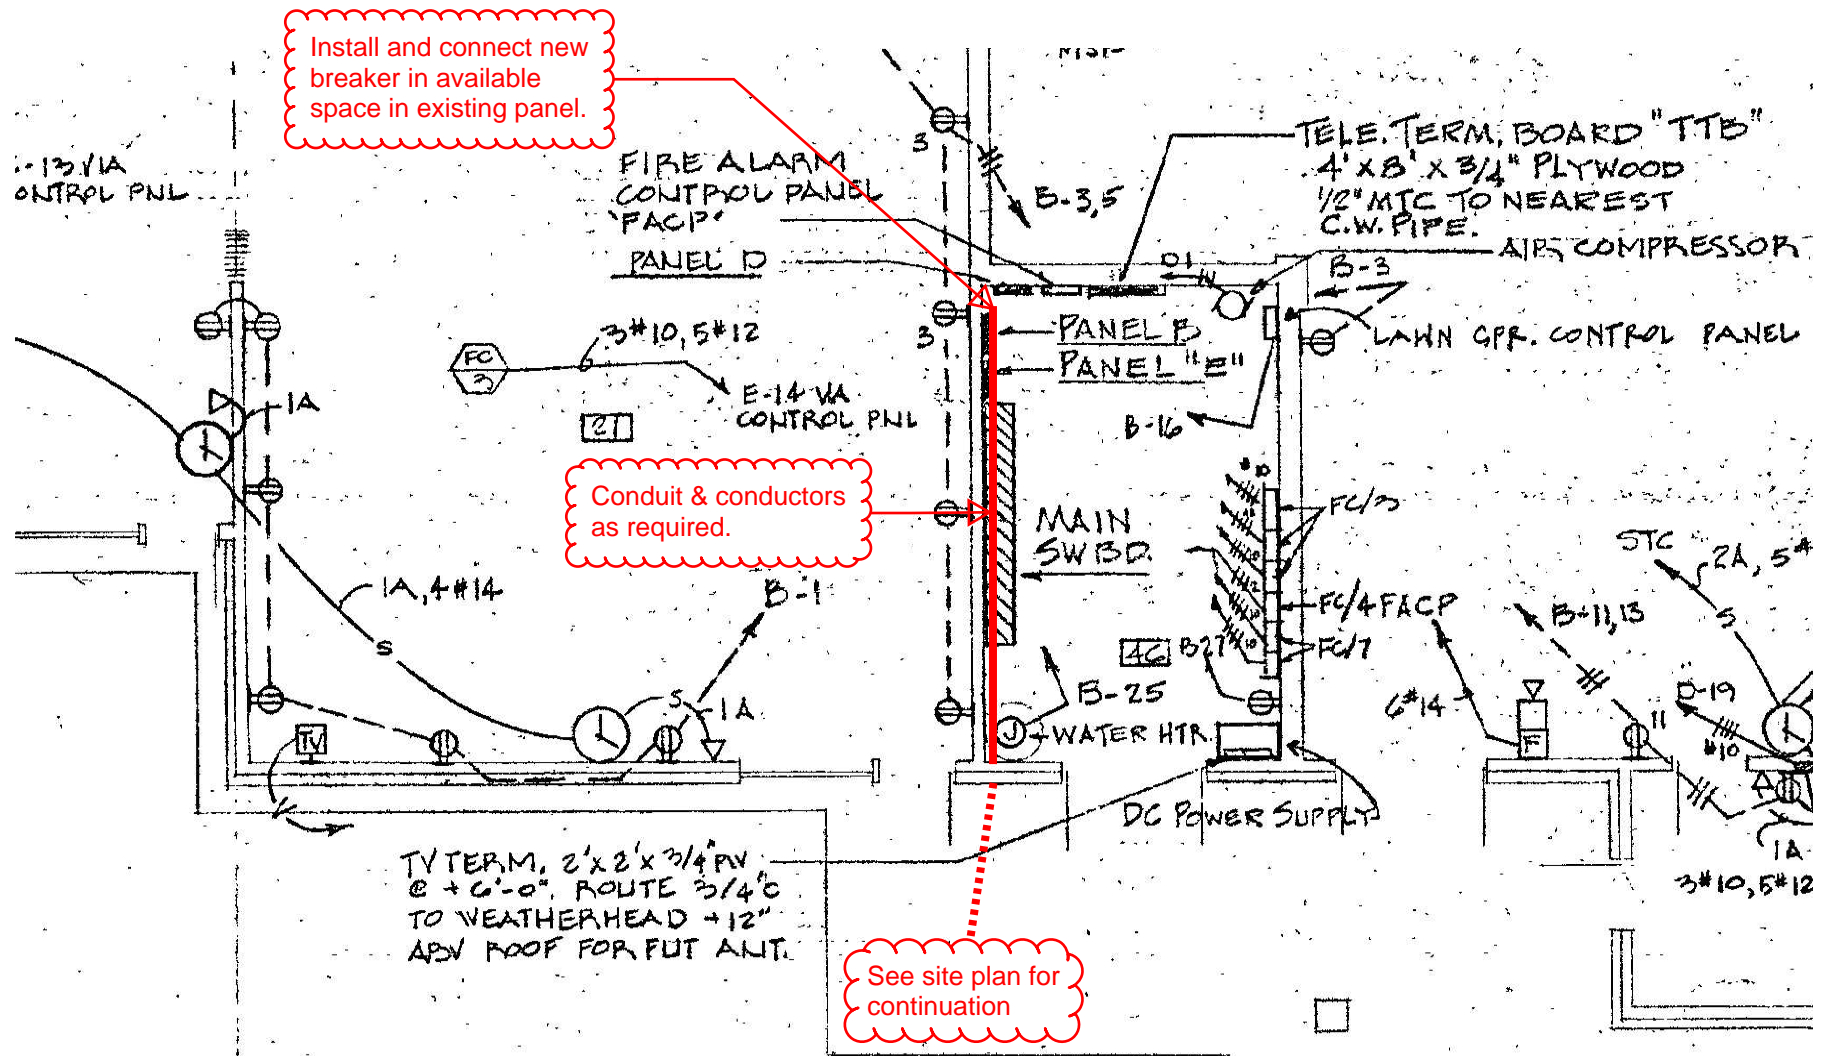 Install and connect new
breaker in available
space in existing panel.
MSP
-13 VIA
ONTROL PNL
FIRE ALARM
CONTROL PANEL
"FACP"
PANEL D
3
B-3,5
TELE. TERM. BOARD "TTB"
4' X 8' X 3/4" PLYWOOD
1/2" MTC TO NEAREST
C.W. PIPE.
AIR COMPRESSOR
D1
B-3
3
3#10, 5#12
FC
3
PANEL B
PANEL "E"
LAWN SPR. CONTROL PANEL
E-14 VIA
CONTROL PNL
1A
27
B-16
#10
Conduit & conductors
as required.
MAIN
SWBD.
FC/3
STC
2A, 5#
1A, 4#14
B-1
FC/4 FACP
B-11,13
S
S
46
B27
FC/7
B-25
S
1A
6#14
D-19
#10
11
TV
J
WATER HTR.
F
DC POWER SUPPLY
1A
3#10, 5#12
TV TERM. 2' X 2' X 3/4" PLY
@ +6'-0". ROUTE 3/4"C
TO WEATHERHEAD +12"
ABV ROOF FOR FUT ANT.
See site plan for
continuation